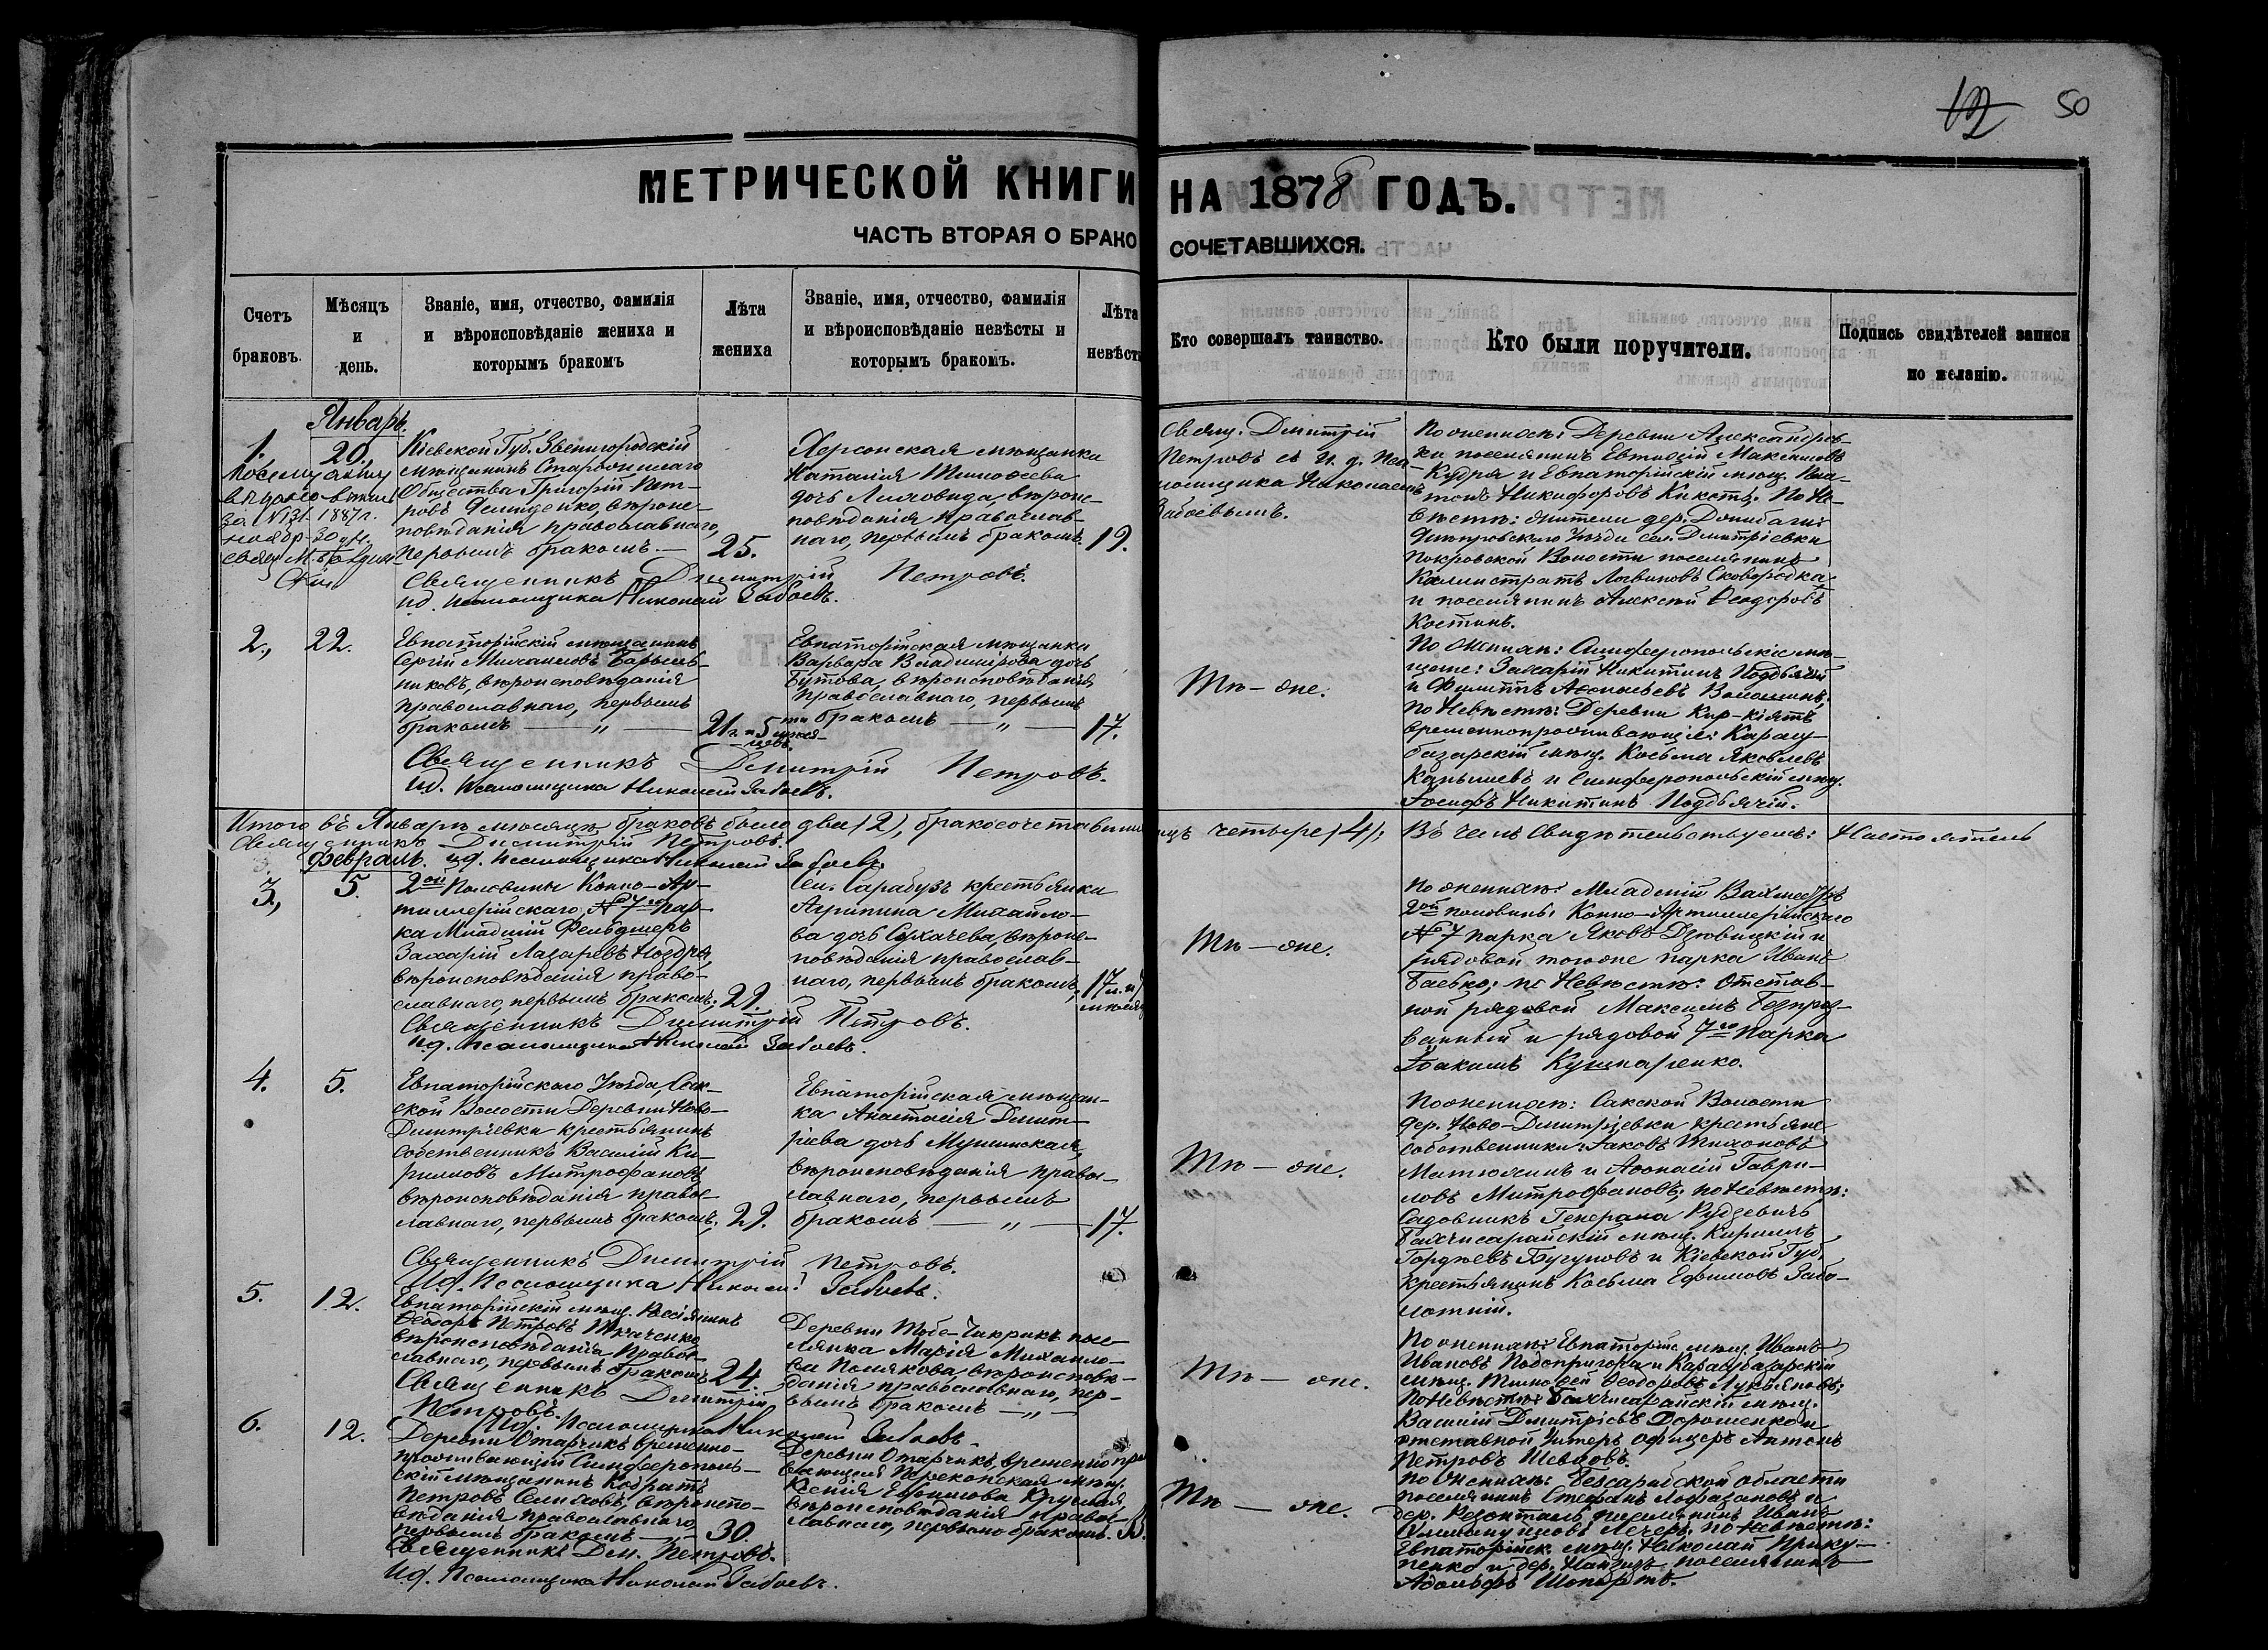 12 50
МЕТРИЧЕСКОЙ КНИГИ НА 1878 ГОДЪ.
ЧАСТЬ ВТОРАЯ О БРАКОСОЧЕТАВШИХСЯ.
Счетъ браковъ.
Мѣсяцъ и день.
Званіе, имя, отчество, фамилія
и вѣроисповѣданіе жениха и
которымъ бракомъ
Лѣта
жениха
Званіе, имя, отчество, фамилія
и вѣроисповѣданіе невѣсты и
которымъ бракомъ.
Лѣта
невѣсты
Кто совершалъ таинство.
Кто были поручители.
Подпись свидѣтелей записи
по желанію.
Январь.
1.
20.
Кіевской Губ. Звенигородскій
мѣщанинъ
Общества Григорій Пет-
ровъ Демиденко, вѣроис-
повѣданія православнаго,
первымъ бракомъ.—
25.
Херсонская мѣщанка
Наталія Тимофеева
дочь вѣроис-
повѣданія православ-
наго, первымъ бракомъ.
19.
Свящ. Димитрій
Петровъ съ И. д. Пса-
ломщика Николаемъ
Забоевымъ.
По женихѣ: Деревни Александров-
ки поселянинъ Евтихій Максимовъ
Кудря и Евпаторійскій мѣщ. Пла-
тонъ Никифоровъ По Не-
вѣстѣ: жители дер.
Днѣпровскаго Уѣзда сел. Дмитріевки
Покровской Волости поселянинъ
Каллистратъ Логвиновъ Сковородка
и поселянинъ Алексѣй Ѳеодоровъ
Костинъ.
за № 31 1887 г.
Священникъ Димитрій Петровъ.
и.д. псаломщика Николай Забоевъ.
2.,
22.
Евпаторійскій мѣщанинъ
Сергій Михаиловъ Барыш-
никовъ, вѣроисповѣданія
православнаго, первымъ
бракомъ — „ —
21 г. и 5ти мѣся-
цевъ.
Евпаторійская мѣщанка
Варвара Владимірова дочь
Бутова, вѣроисповѣданія
православнаго, первымъ
бракомъ — „ —
17.
Тѣ — же.
По Женихѣ: Симферопольскіе мѣ-
щане: Захарій Никитинъ Подьячій
и Филиппъ Аѳанасьевъ Волошинъ,
по Невѣстѣ: Деревни Кир-кіятъ
временнопроживающіе: Карасу-
базарскій мѣщ. Косьма Яковлевъ
и Симферопольскій мѣщ.
Іосифъ Никитинъ Подьячій.
Священникъ Димитрій Петровъ.
и.д. псаломщика Николай Забоевъ.
Итого въ Январѣ мѣсяцѣ браковъ было два (2), бракосочетавшихся лицъ четыре (4); Въ чемъ свидѣтельствуемъ: Настоятель
Священникъ Димитрій Петровъ.
Февраль. и.д. псаломщика Николай Забоевъ.
3,
5.
2ой половины Конно-Ар-
тиллерійскаго, № 7го пар-
ка Младшій Фельдшеръ
Захарій Лазаревъ Ноздря,
вѣроисповѣданія право-
славнаго, первымъ бракомъ;
29.
Сел. Сарабузъ крестьянка
Агрипина Михайло-
ва дочь Сухачева, вѣроис-
повѣданія православ-
наго, первымъ бракомъ,
17 л. и
мѣсяц
Тѣ — же.
По женихѣ: Младшій Вахмистръ
2ой половины Конно-Артиллерійскаго
№ 7 парка Яковъ Дзювицкій и
рядовой того же парка Иванъ
Баевко; по Невѣстѣ: Отстав-
ной рядовой Максимъ Безпроз-
ванный и рядовой 7го парка
Іоакимъ Кушнаренко.
Священникъ Димитрій Петровъ.
и.д. псаломщика Николай Забоевъ.
4.
5.
Евпаторійскаго Уѣзда, Сак-
ской Волости Деревни Ново-
Димитріевки крестьянинъ
собственникъ Василій Ки-
рилловъ Митрофановъ,
вѣроисповѣданія право-
славнаго, первымъ бракомъ;
29.
Евпаторійская мѣщан-
ка Анастасія Димит-
ріева дочь Мушинская,
вѣроисповѣданія право-
славнаго, первымъ
бракомъ — „ —
17.
Тѣ — же.
По женихѣ: Сакской Волости
дер. Ново-Димитріевки крестьяне
собственники: Іаковъ Тихоновъ
Матюхинъ и Аѳанасій Гаври-
ловъ Митрофановъ; по Невѣстѣ:
Садовникъ Генерала Рудзевичъ
Бахчисарайскій мѣщ. Кириллъ
Гордѣевъ Бугуновъ и Кіевской Губ.
крестьянинъ Косьма Ефимовъ Забо-
лотній.
Священникъ Димитрій Петровъ.
И.д. Псаломщика Николай Забоевъ.
5.
12.
Евпаторійскій мѣщ.
Ѳеодоръ Петровъ Ткаченко
вѣроисповѣданія право-
славнаго, первымъ бракомъ
24.
Деревни Тобе-Чакракъ посе-
лянка Марія Михайло-
ва Полякова, вѣроисповѣ-
данія православнаго, пер-
вымъ бракомъ — „ —
Тѣ — же.
По женихѣ: Евпаторійс. мѣщ. Иванъ
Ивановъ Подопригора и Карасубазарскій
мѣщ. Тимофей Ѳеодоровъ Лукьяновъ;
по Невѣстѣ: Бахчисарайскій мѣщ.
Василій Дмитріевъ Дорошенко и
отставной Унтеръ офицеръ Антонъ
Петровъ Шевцовъ.
Священникъ Димитрій
Петровъ.
И.д. Псаломщика Николай Забоевъ.
6.
12.
Деревни Отарчикъ временно-
проживающій Симферополь-
скій мѣщанинъ Кодратъ
Петровъ Селиховъ, вѣроиспо-
вѣданія православнаго
первымъ бракомъ —
30
Деревни Отарчикъ, временно про-
вающая Перекопская мѣщ.
Ксенія Ефимова Круглая,
вѣроисповѣданія право-
славнаго, первымъ бракомъ.
Тѣ — же.
По Женихѣ: Бессарабской области
поселянинъ Стефанъ и
дер. поселянинъ Иванъ
по Невѣстѣ:
Евпаторійск. мѣщ. Николай Прику-
пенко и дер. поселянинъ
Адольфъ Шопартъ.
Священникъ Дим. Петровъ.
И.д. Псаломщика Николай Забоевъ.